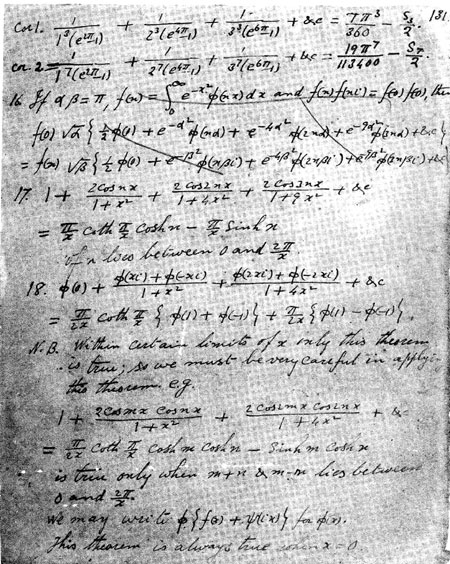 Cor 1. 1/1³(e^{2π}-1) + 1/2³(e^{4π}-1) + 1/3³(e^{6π}-1) + &c = 7π³/360 - S₃/2. 131
cor 2 = 1/1⁷(e^{2π}-1) + 1/2⁷(e^{4π}-1) + 1/3⁷(e^{6π}-1) + &c = 19π⁷/113400 - S₇/2.
16. If αβ = π, f(n) = ∫₀^∞ e^{-x²} φ(nx) dx and f(n) f(ni) = f(0) f(0), then
f(0) √α {½ φ(0) + e^{-α²} φ(nα) + e^{-4α²} φ(2nα) + e^{-9α²} φ(3nα) + &c}
= f(n) √β {½ φ(0) + e^{-β²} φ(nβi) + e^{-4β²} φ(2nβi) + e^{-9β²} φ(3nβi) + &c}
17. 1 + 2 cos nx/1+x² + 2 cos 2nx/1+4x² + 2 cos 3nx/1+9x² + &c
= π/x coth π/x cosh n - π/x sinh n
if n lies between 0 and 2π/x.
18. φ(0) + φ(xi)+φ(-xi)/1+x² + φ(2xi)+φ(-2xi)/1+4x² + &c
= π/2x coth π/x {φ(1) + φ(-1)} + π/2x {φ(1) - φ(-1)}.
N.B. Within certain limits of x only this theorem
is true; so we must be very careful in applying
this theorem. e.g.
1 + 2 cos mx cos nx/1+x² + 2 cos 2mx cos 2nx/1+4x² + &c
= π/2x coth π/x cosh m cosh n - sinh m cosh n
is true only when m+n & m-n lies between
0 and 2π/x.
we may write φ{f(x) + ψ(ix)} for φ(x).
This theorem is always true when x = 0.